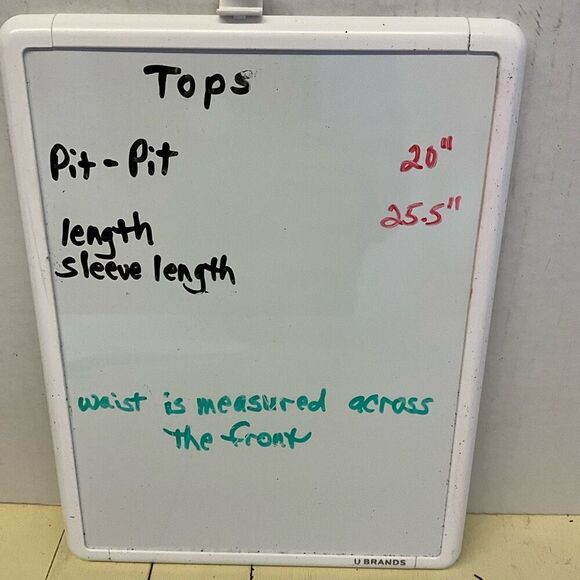 Tops
Pit - Pit 20"
length 25.5"
sleeve length
waist is measured across
the front
U BRANDS